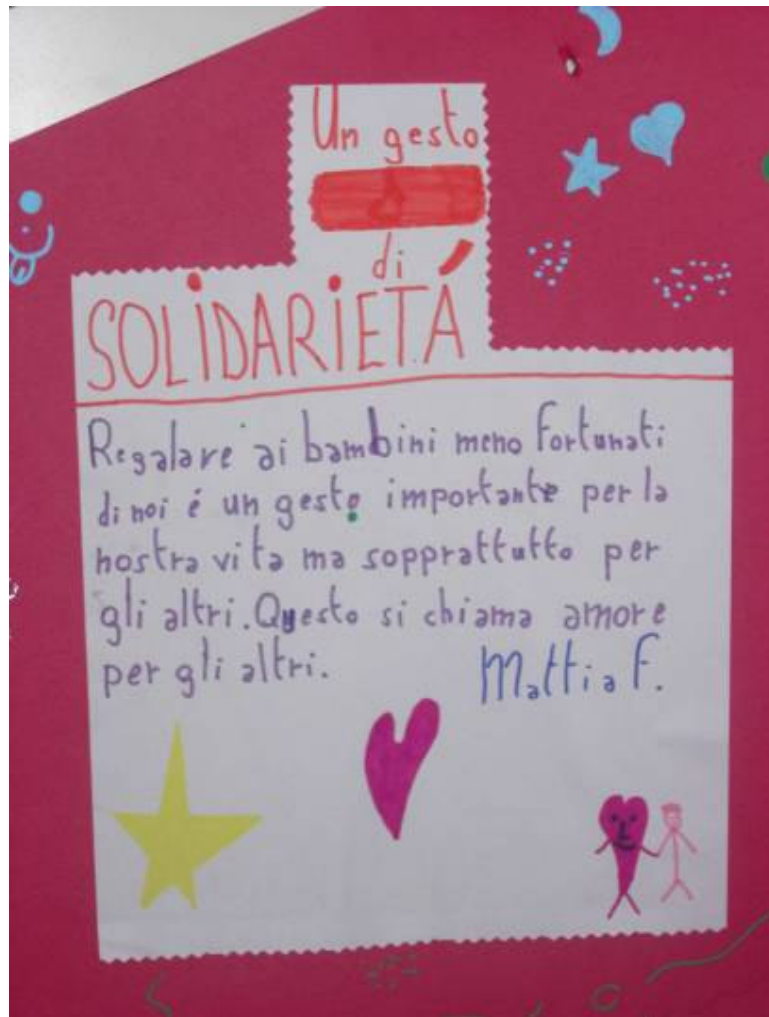 Un gesto
di
SOLIDARIETÁ
Regalare ai bambini meno fortunati
di noi é un gesto importante per la
nostra vita ma sopprattutto per
gli altri. Questo si chiama amore
per gli altri. Mattia F.